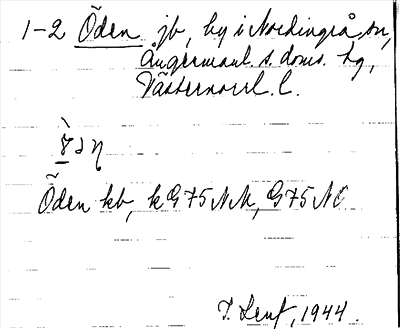 1-2 Öden jb, by i Nordingrå sn,
Ångermanl. s. doms. hg,
Västernorrl. l.
Öden kb, k G75 NM, G75 NO
1944.